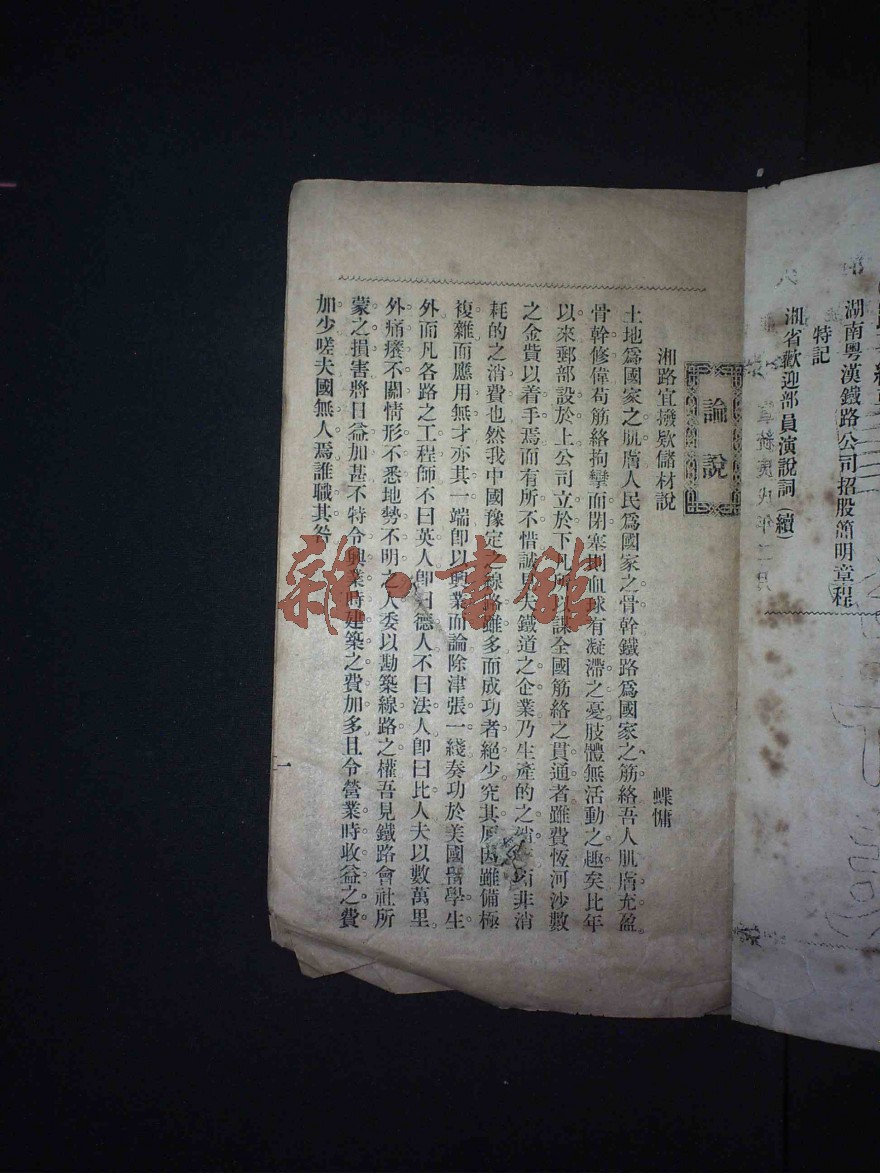 湖南粵漢鐵路公司招股簡明章程
特記
湘省歡迎部員演說詞(續)
論說
湘路宜撥欵儲材說
蝶慵
土地爲國家之肌膚人民爲國家之骨幹鐵路爲國家之筋絡吾人肌膚充盈
骨幹修偉苟筋絡拘攣而閉塞則血球有凝滯之憂肢體無活動之趣矣比年
以來郵部設於上公司立於下凡所謀全國筋絡之貫通者雖費恆河沙數
之金貲以着手焉而有所不惜誠見夫鐵道之企業乃生產的之而非消
耗的之消費也然我中國豫定之線路雖多而成功者絕少究其原因雖備極
複雜而應用無才亦其一端卽以興業而論除津張一綫奏功於美國留學生
外而凡各路之工程師不曰英人卽曰德人不曰法人卽曰比人夫以數萬里
外痛癢不關情形不悉地勢不明之人委以勘築線路之權吾見鐵路會社所
蒙之損害將日益加甚不特令興業時建築之費加多且令營業時收益之費
加少嗟夫國無人焉誰職其咎
一
雜·書館